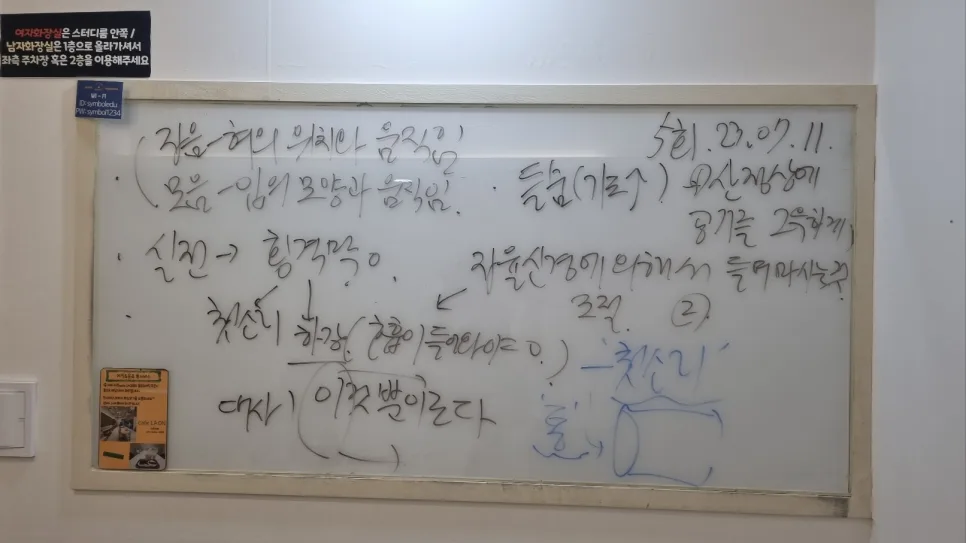 여자화장실은 스터디룸 안쪽 /
남자화장실은 1층으로 올라가셔서
좌측 주차장 혹은 2층을 이용해주세요
ID:symboledu
PW:symbol1234
5회. 23.07.11.
자음-혀의 위치와 움직임
모음-입의 모양과 움직임.
· 들숨(기로↑) 산정상에
공기를 그윽하게,
들여마시는 것
· 실전 → 횡격막
자율신경에 의해서
조절. ②
· 첫소리 하강. (호흡이 들어와야 .)
대사 | 이것 뿐이로다
- 첫소리
"흠"